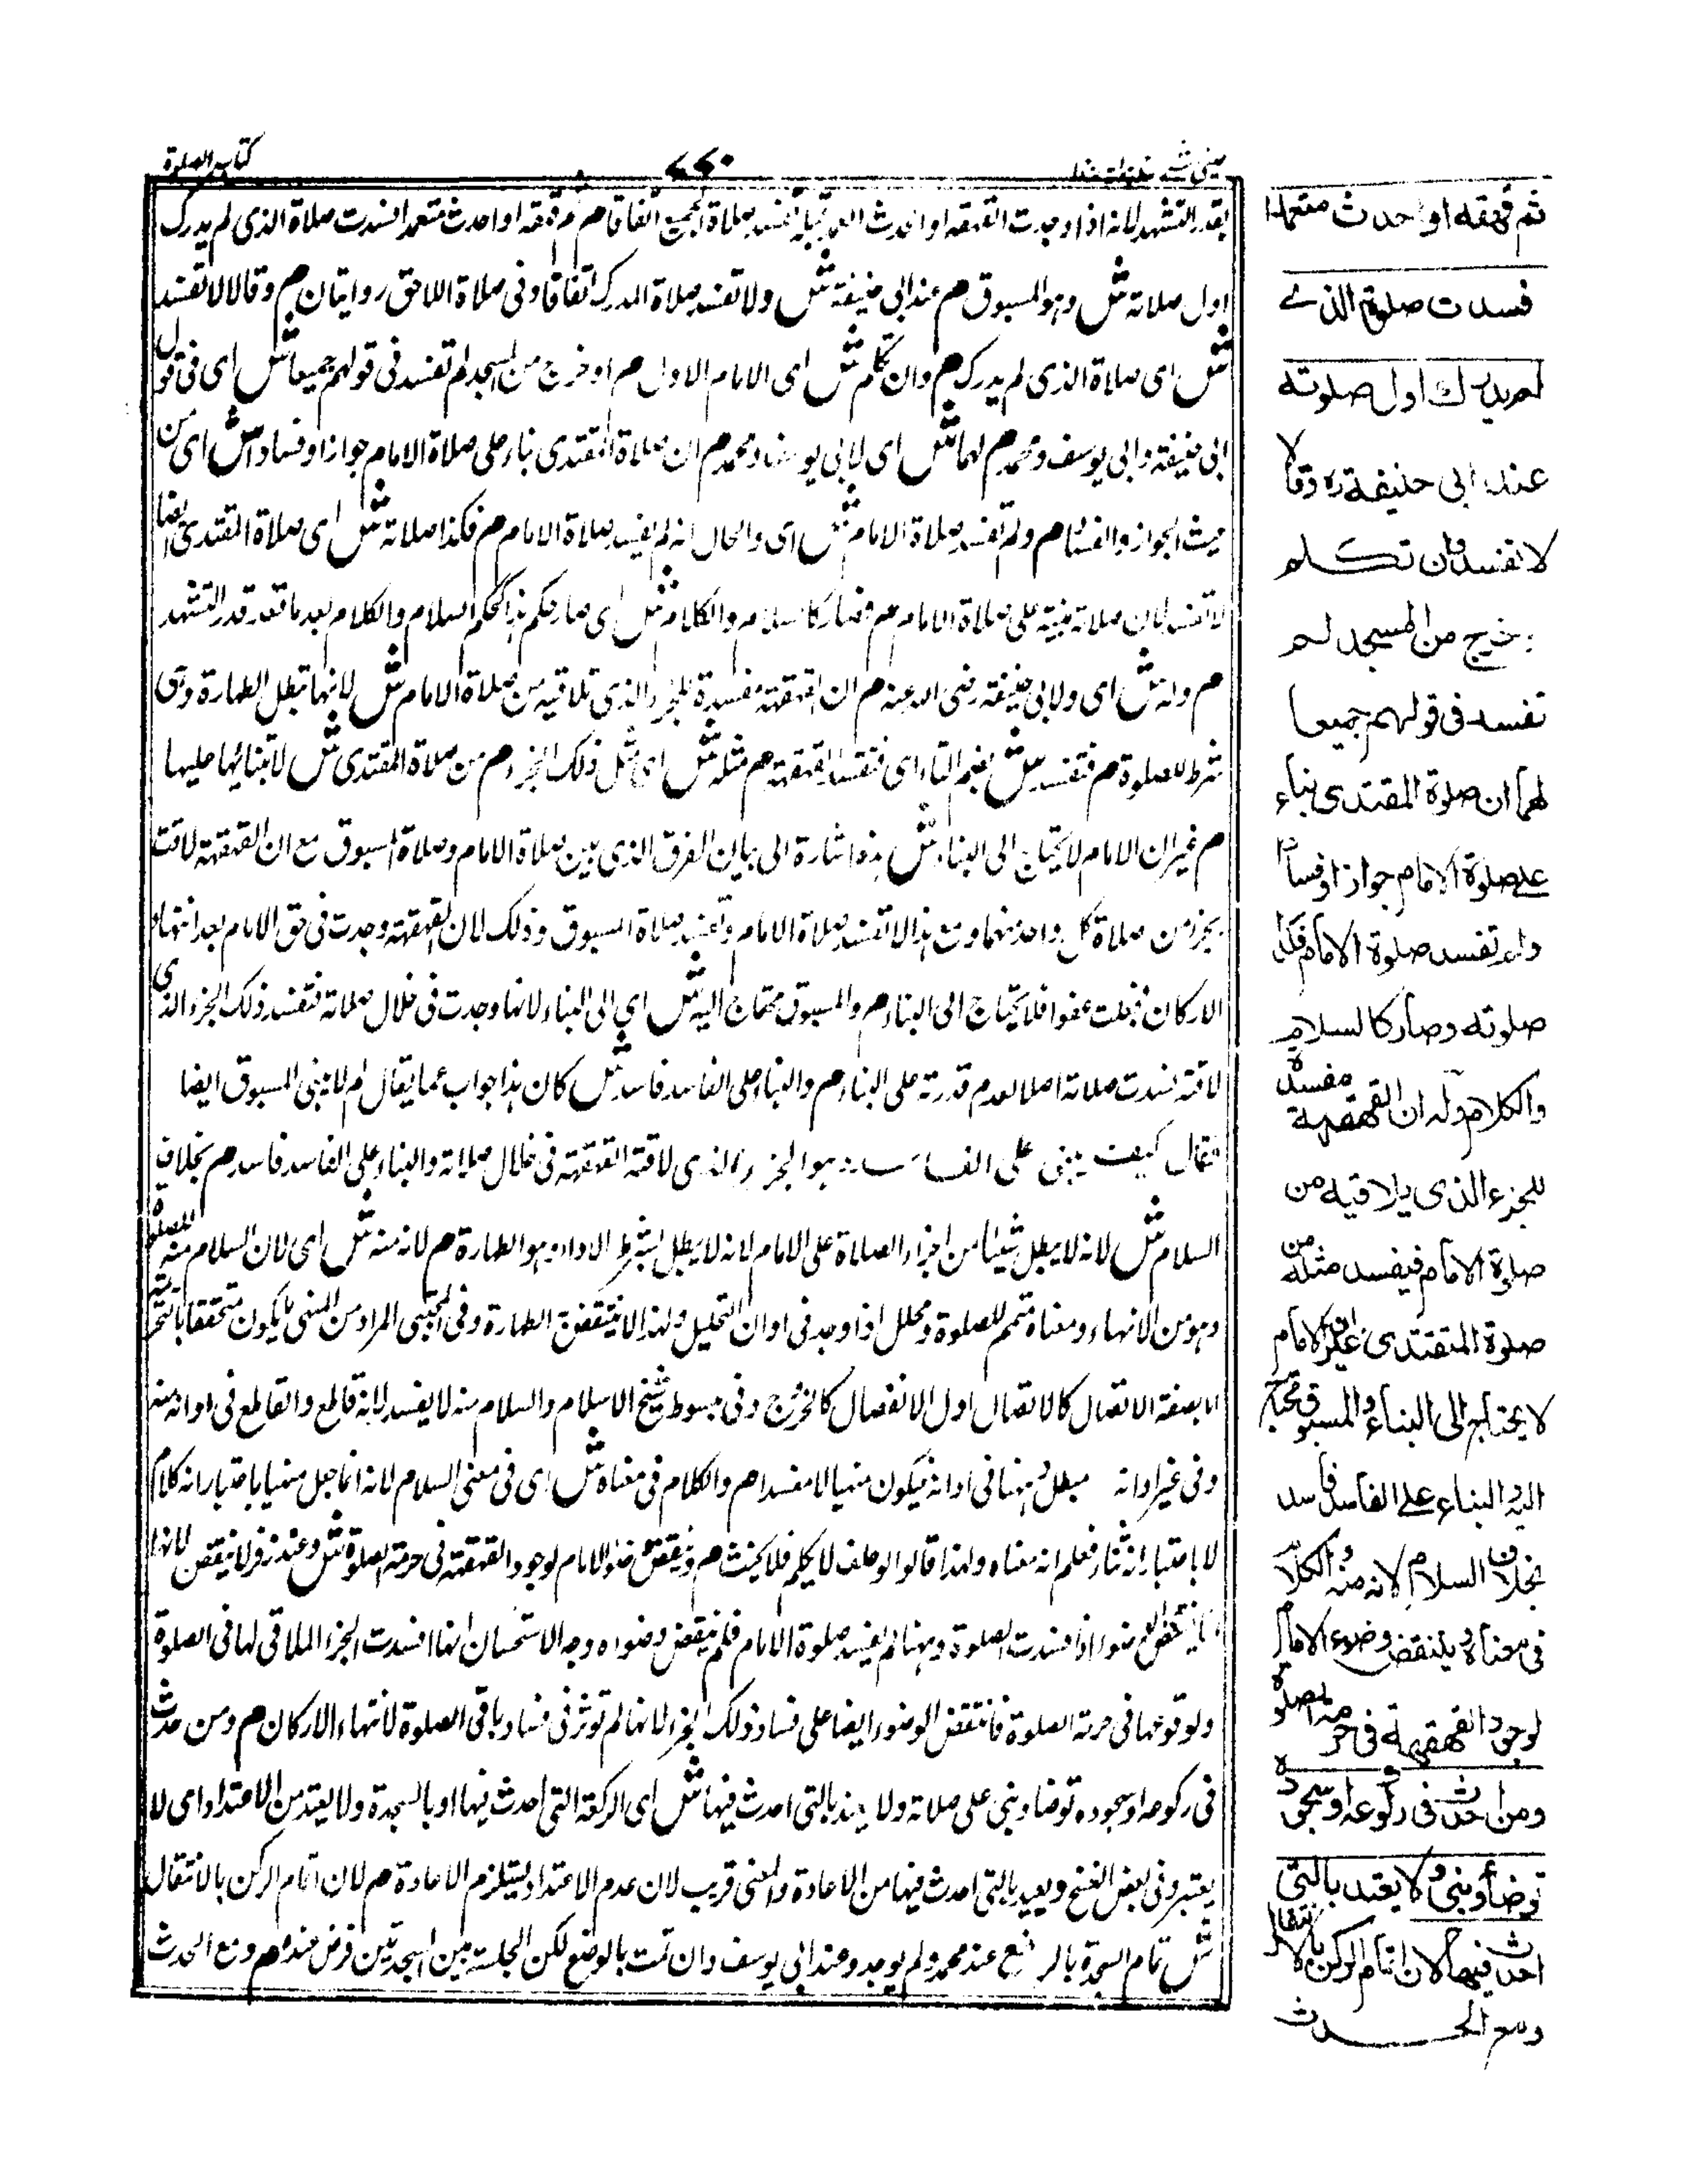 كتاب الصلوة
٧٧٠
عينى شرح هداية
بقدر التشهد لانه اذا وجدت القهقهة او الحدث العمد قبله تفسد صلاة الجميع اتفاقا م ثم قهقه او احدث متعمدا فسدت صلاة الذى لم يدرك
اول صلاته ش وهو المسبوق م عند ابى حنيفة ش ولا تفسد صلاة المدرك اتفاقا وفى صلاة اللاحق روايتان م وقالا لا تفسد
ش اى صلاة الذى لم يدرك م وان تكلم ش اى الامام الاول م او خرج من المسجد لم تفسد فى قولهم جميعا ش اى فى قول
ابى حنيفة وابى يوسف ومحمد م لهما ش اى لابى يوسف ومحمد م ان صلاة المقتدى بناء على صلاة الامام جوازا وفسادا ش اى من
حيث الجواز والفساد م ولم تفسد صلاة الامام ش اى والحال انه لم يفسد صلاة الامام م فكذا صلاته ش اى صلاة المقتدى ايضا
لا تفسد لان صلاته مبنية على صلاة الامام م وصار كالسلام والكلام ش اى صار حكم هذا كحكم السلام والكلام بعد ما قعد قدر التشهد
م وله ش اى ولابى حنيفة رضى الله عنه م ان القهقهة مفسدة للجزء الذى تلاقيه من صلاة الامام ش لانها تبطل الطهارة وهى
شرط للصلوة م فتفسد ش بضم التاء اى فتفسد القهقهة م مثله ش اى مثل ذلك الجزء م من صلاة المقتدى ش لابتنائها عليها
م غير ان الامام لا يحتاج الى البناء ش هذه اشارة الى بيان الفرق الذى بين صلاة الامام وصلاة المسبوق مع ان القهقهة لاقت
بجزء من صلاة كل واحد منهما ومع هذا لا تفسد صلاة الامام وتفسد صلاة المسبوق وذلك لان القهقهة وجدت فى حق الامام بعد انتهاء
الاركان فجعلت عفوا فلا يحتاج الى البناء م والمسبوق محتاج اليه ش اى الى البناء لانها وجدت فى خلال صلاته فتفسد ذلك الجزء الذى
لاقته فسدت صلاته اصلا لعدم قدرته على البناء م والبناء على الفاسد فاسد ش كان هذا جواب عما يقال لم لا يبنى المسبوق ايضا
فقال كيف يبنى على الفاسد وهو الجزء الذى لاقته القهقهة فى خلال صلاته والبناء على الفاسد فاسد م بخلاف
السلام ش لانه لا يبطل شيئا من اجزاء الصلاة على الامام لانه لا يبطل شرط الاداء وهو الطهارة م لانه منه ش اى لان السلام منه للصلوة
وهو من الانهاء ومعناه متمم للصلوة ومحلل اذا وجد فى اوان التحليل ولهذا لا ينتقض به الطهارة وفى المجتبى المراد من المنهى ما يكون متحققا بالتحريمة
لا بصفة الاتصال كالاتصال اول الانفصال كالخروج وفى مبسوط شيخ الاسلام والسلام منه لا يفسد لانه قاطع والقاطع فى اوانه منه
وفى غير اوانه مبطل وههنا فى اوانه فيكون منهيا لا مفسدا م والكلام فى معناه ش اى فى معنى السلام لانه انما جعل منهيا باعتبار انه كلام
لا باعتبار انه ثناء فعلم انه معناه ولهذا قالوا لو حلف لا يكلم فلانا يحنث م وينتقض وضوء الامام لوجود القهقهة فى حرمة الصلوة ش وعند زفر لا ينتقض لانها
انما تنقض الوضوء اذا فسدت الصلوة وههنا لم يفسد صلوة الامام فلم ينتقض وضوءه وجه الاستحسان انها افسدت الجزء الملاقى لها فى الصلوة
ولوقوعها فى حرمة الصلوة فانتقض الوضوء ايضا على فساد ذلك الجزء لانها لم توثر فى فساد باقى الصلوة لانتهاء الاركان م ومن احدث
فى ركوعه او سجوده توضا وبنى على صلاته ولا يعتد بالتى احدث فيها ش اى الركعة التى احدث فيها او بالسجدة ولا يعتد من الاعتداد اى لا
يعتبر وفى بعض النسخ ويعيد بالتى احدث فيها من الاعادة والمعنى قريب لان عدم الاعتداد يستلزم الاعادة م لان اتمام الركن بالانتقال
ش تمام السجدة بالرفع عند محمد ولم يوجد وعند ابى يوسف وان تمت بالوضع لكن الجلسة بين السجدتين فرض عنده م ومع الحدث
ثم قهقه او احدث متعمدا
فسدت صلوة الذى
لم يدرك اول صلوته
عند ابى حنيفة ره وقالا
لا تفسد وان تكلم
او خرج من المسجد لم
تفسد فى قولهم جميعا
لهما ان صلوة المقتدى بناء
على صلوة الامام جوازا وفسادا
ولم تفسد صلوة الامام فكذا
صلوته وصار كالسلام
والكلام وله ان القهقهة مفسدة
للجزء الذى يلاقيه من
صلوة الامام فيفسد مثله من
صلوة المقتدى غير ان الامام
لا يحتاج الى البناء والمسبوق محتاج
اليه والبناء على الفاسد فاسد
بخلاف السلام لانه منه والكلام
فى معناه وينتقض وضوء الامام
لوجود القهقهة فى حرمة الصلوة
ومن احدث فى ركوعه او سجوده
توضأ وبنى ولا يعتد بالتى
احدث فيها لان اتمام الركن بالانتقال
ومع الحدث